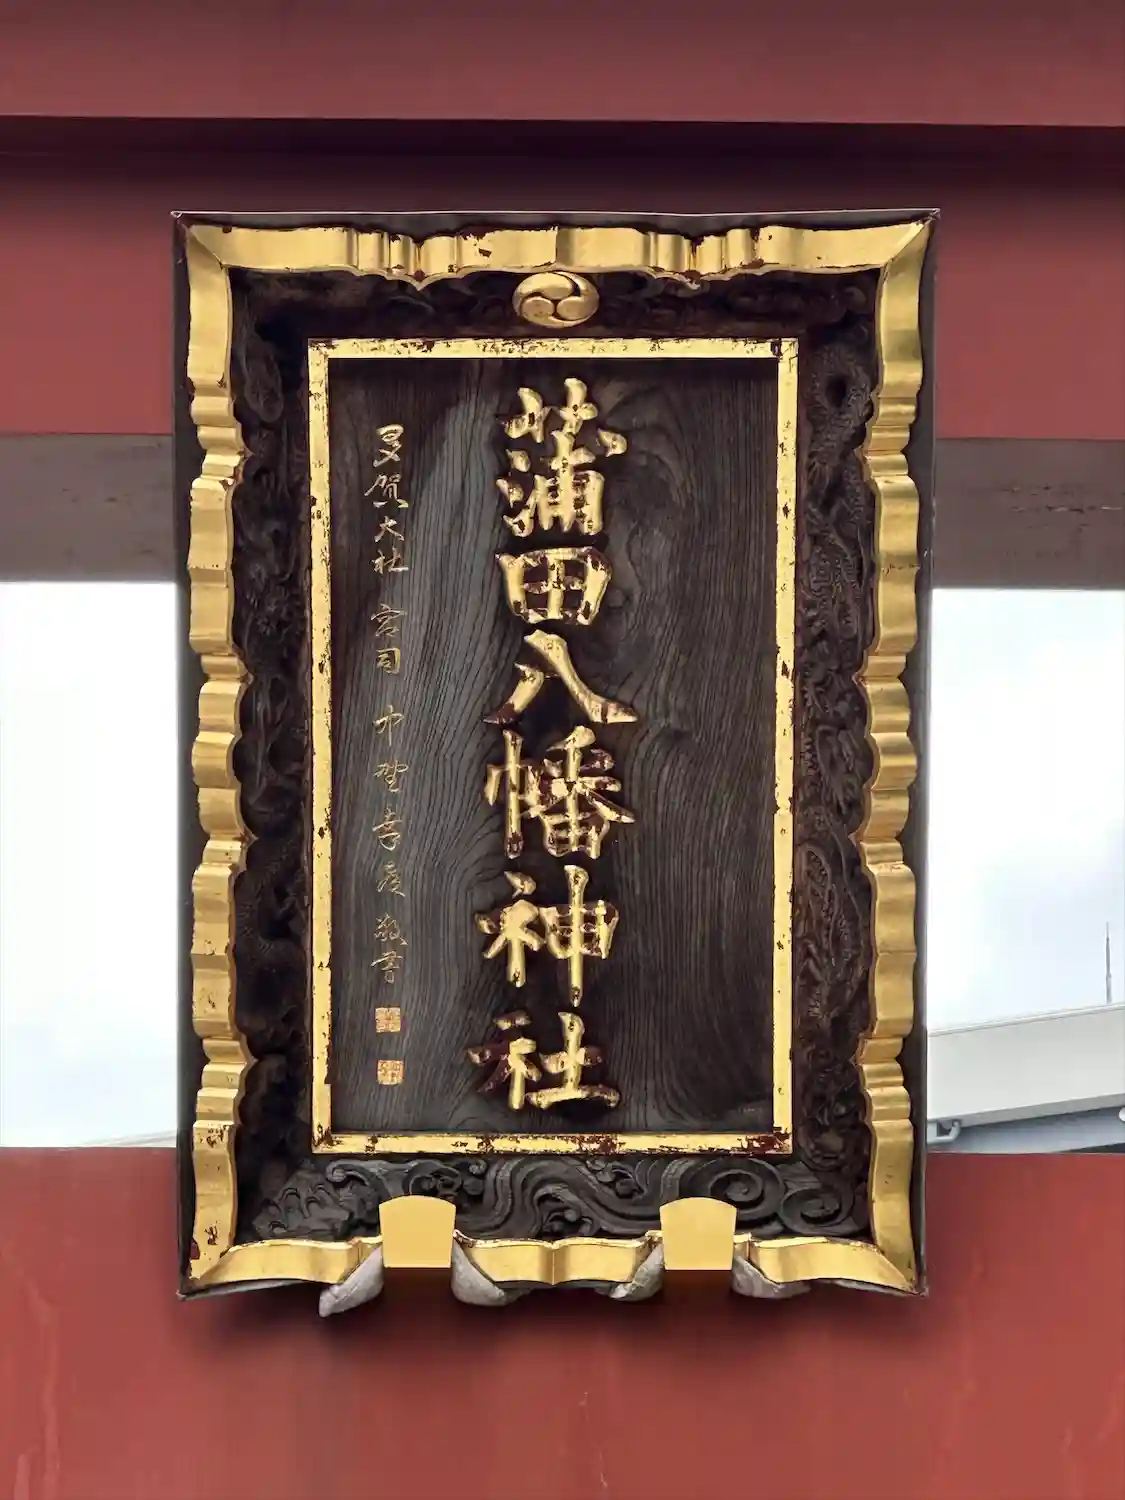 蒲田八幡神社
多賀大社 宮司 中野幸彦 敬書